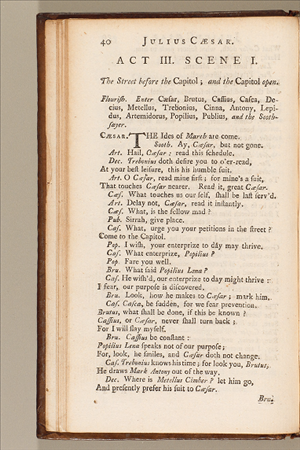 40 JULIUS CÆSAR.
ACT III. SCENE I.
The Street before the Capitol; and the Capitol open.
Flourish. Enter Cæsar, Brutus, Cassius, Casca, De-
cius, Metellus, Trebonius, Cinna, Antony, Lepi-
dus, Artemidorus, Popilius, Publius, and the Sooth-
sayer.
CÆSAR. THE Ides of March are come.
Sooth. Ay, Cæsar, but not gone.
Art. Hail, Cæsar; read this schedule.
Dec. Trebonius doth desire you to o'er-read,
At your best leisure, this his humble suit.
Art. O Cæsar, read mine first; for mine's a suit,
That touches Cæsar nearer. Read it, great Cæsar.
Cæs. What touches us our self, shall be last serv'd.
Art. Delay not, Cæsar, read it instantly.
Cæs. What, is the fellow mad?
Pub. Sirrah, give place.
Cas. What, urge you your petitions in the street?
Come to the Capitol.
Pop. I wish, your enterprize to day may thrive.
Cas. What enterprize, Popilius?
Pop. Fare you well.
Bru. What said Popilius Lena?
Cas. He wish'd, our enterprize to day might thrive:
I fear, our purpose is discovered.
Bru. Look, how he makes to Cæsar; mark him.
Cas. Casca, be sudden, for we fear prevention.
Brutus, what shall be done, if this be known?
Cassius, or Cæsar, never shall turn back;
For I will slay myself.
Bru. Cassius be constant:
Popilius Lena speaks not of our purpose;
For, look, he smiles, and Cæsar doth not change.
Cas. Trebonius knows his time; for look you, Brutus,
He draws Mark Antony out of the way.
Dec. Where is Metellus Cimber? let him go,
And presently prefer his suit to Cæsar.
Bru.